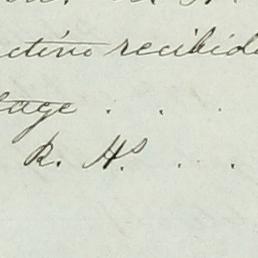 ctivo recibido
tage . . .
R. Hs . . .